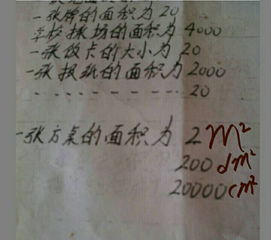 一张牌的面积为 20
学校操场的面积为 4000
一张饭卡的大小为 20
一张报纸的面积为 2000
- - - - - - - - - 20
一张方桌的面积为 2 m²
200 dm²
20000 cm²